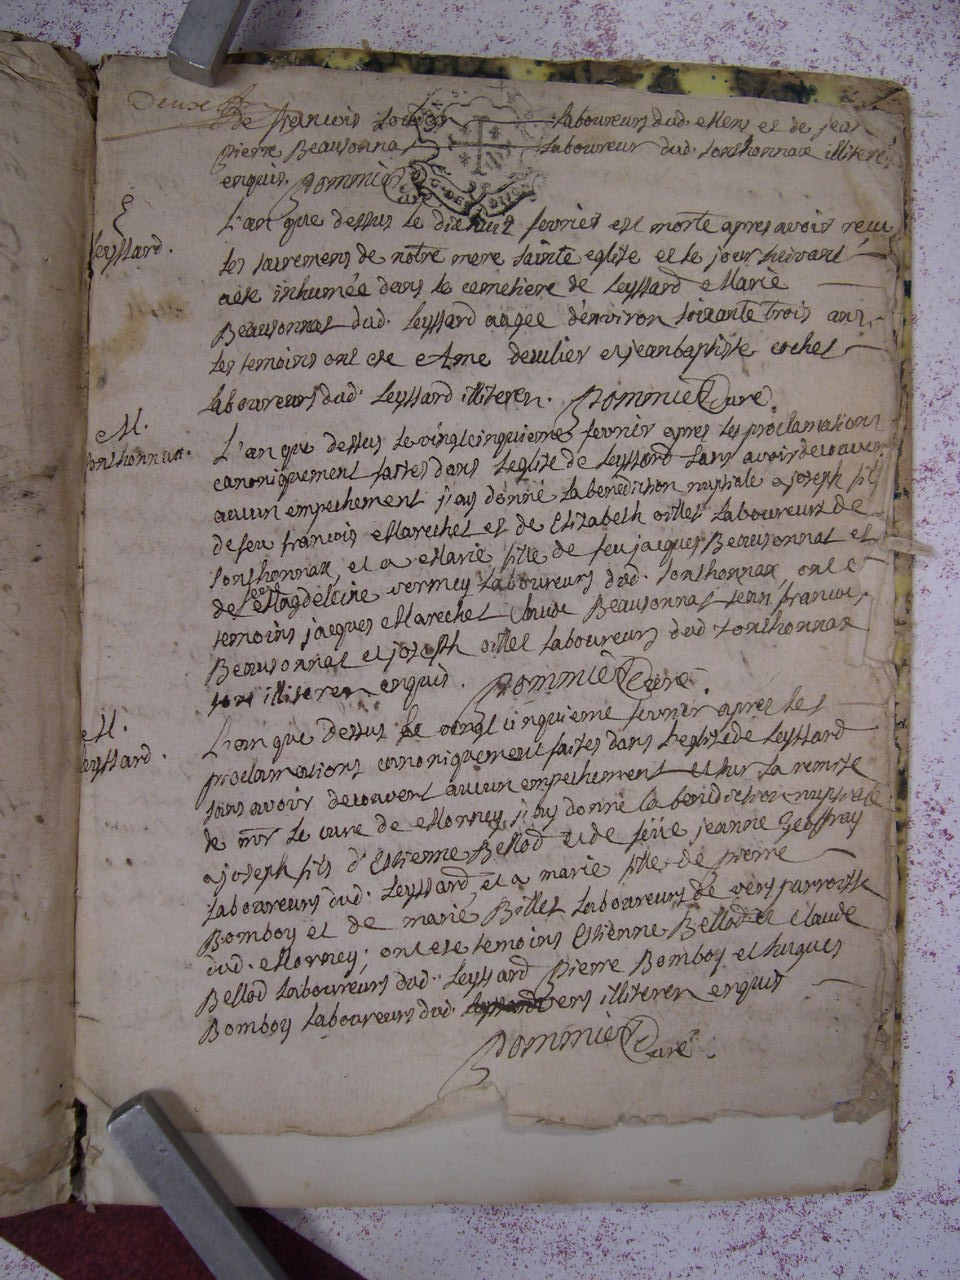 Deuxe
de françois Laboureurs dud. Mens et de jean
pierre Beausonnat Laboureur dud. sonthonnax illiteré
enquis. Pommier Curé
E.
Leyssard.
L'an que dessus le dixhuit fevrier est morte apres avoir reçu
les sacremens de notre mere sainte eglise et le jour suivant
a ete inhumée dans le cemetiere de Leyssard Marie
Beausonnat dud. Leyssard aagée denviron soixante trois ans,
les temoins ont ete Ame deculier et jeanbaptiste cochet
laboureurs dud. Leyssard illiteren. Pommier Curé.
M.
sonthonnax.
L'an que dessus le vingt cinquieme fevrier apres les proclamations
canoniquement faites dans l'eglise de Leyssard sans avoir decouvert
aucun empechement j'ay donné la benediction nuptiale a joseph fils
de feu françois Marechet et de Elizabeth oillet Laboureurs de
sonthonnax, et a Marie fille de feu jacques Beausonnat et
de feüe Magdeleine vermey Laboureurs dud. sonthonnax, ont ete
temoins jacques Marechet Claude Beausonnat jean francois
Beausonnat et joseph oillet Laboureurs dud. sonthonnax
tous illiteren enquis. Pommier Curé.
M.
Leyssard.
L'an que dessus le vingt cinquieme fevrier après les
proclamations canoniquement faites dans l'eglise de Leyssard
sans avoir decouvert aucun empechement et sur la remise
de mr le curé de Morney, j'ay donné la benediction nuptiale
a joseph fils d'Estienne Bellod et de feüe jeanne Geoffray
laboureurs dud. Leyssard, et a marie fille de pierre
Bomboy et de marie Billet laboureurs de vers parroisse
dud. Morney; ont ete temoins Estienne Bellod et Claude
Bellod laboureurs dud. Leyssard Pierre Bomboy et hugues
Bomboy laboureurs dud. vers illiteren enquis
Pommier Curé.